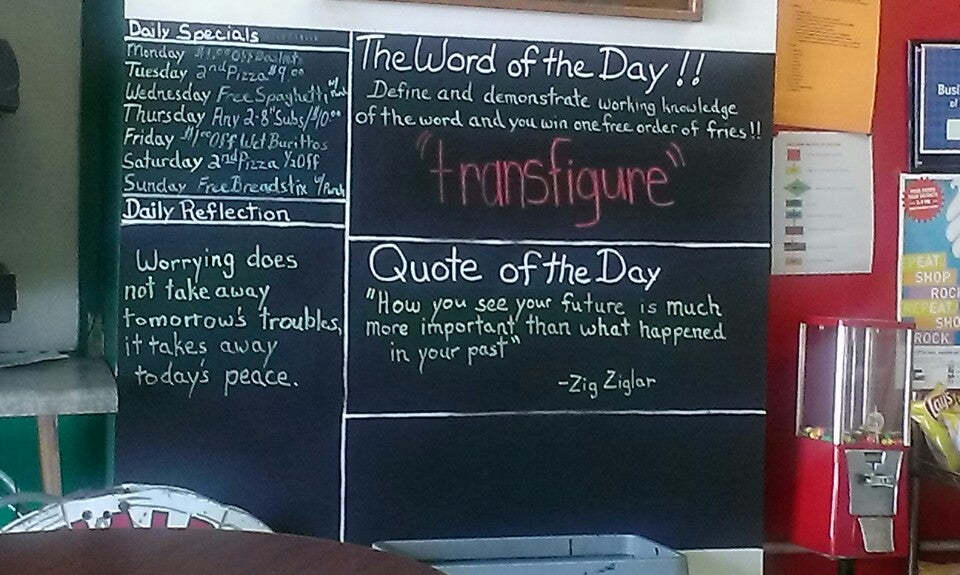 Daily Specials
Monday $1.00 Off
Tuesday 2nd Pizza $9.00
Wednesday Free Spaghetti w/
Thursday Any 2-8" Subs/$10.00
Friday $1.00 Off Wet Burittos
Saturday 2nd Pizza 1/2 Off
Sunday Free Breadstix w/
Daily Reflection
Worrying does
not take away
tomorrow's troubles,
it takes away
today's peace.
The Word of the Day !!
Define and demonstrate working knowledge
of the word and you win one free order of fries!!
"transfigure"
Quote of the Day
"How you see your future is much
more important than what happened
in your past"
-Zig Ziglar
Busi
of
PEAT
SHOP
ROCK
REPEAT
SHO
ROCK
Lay's